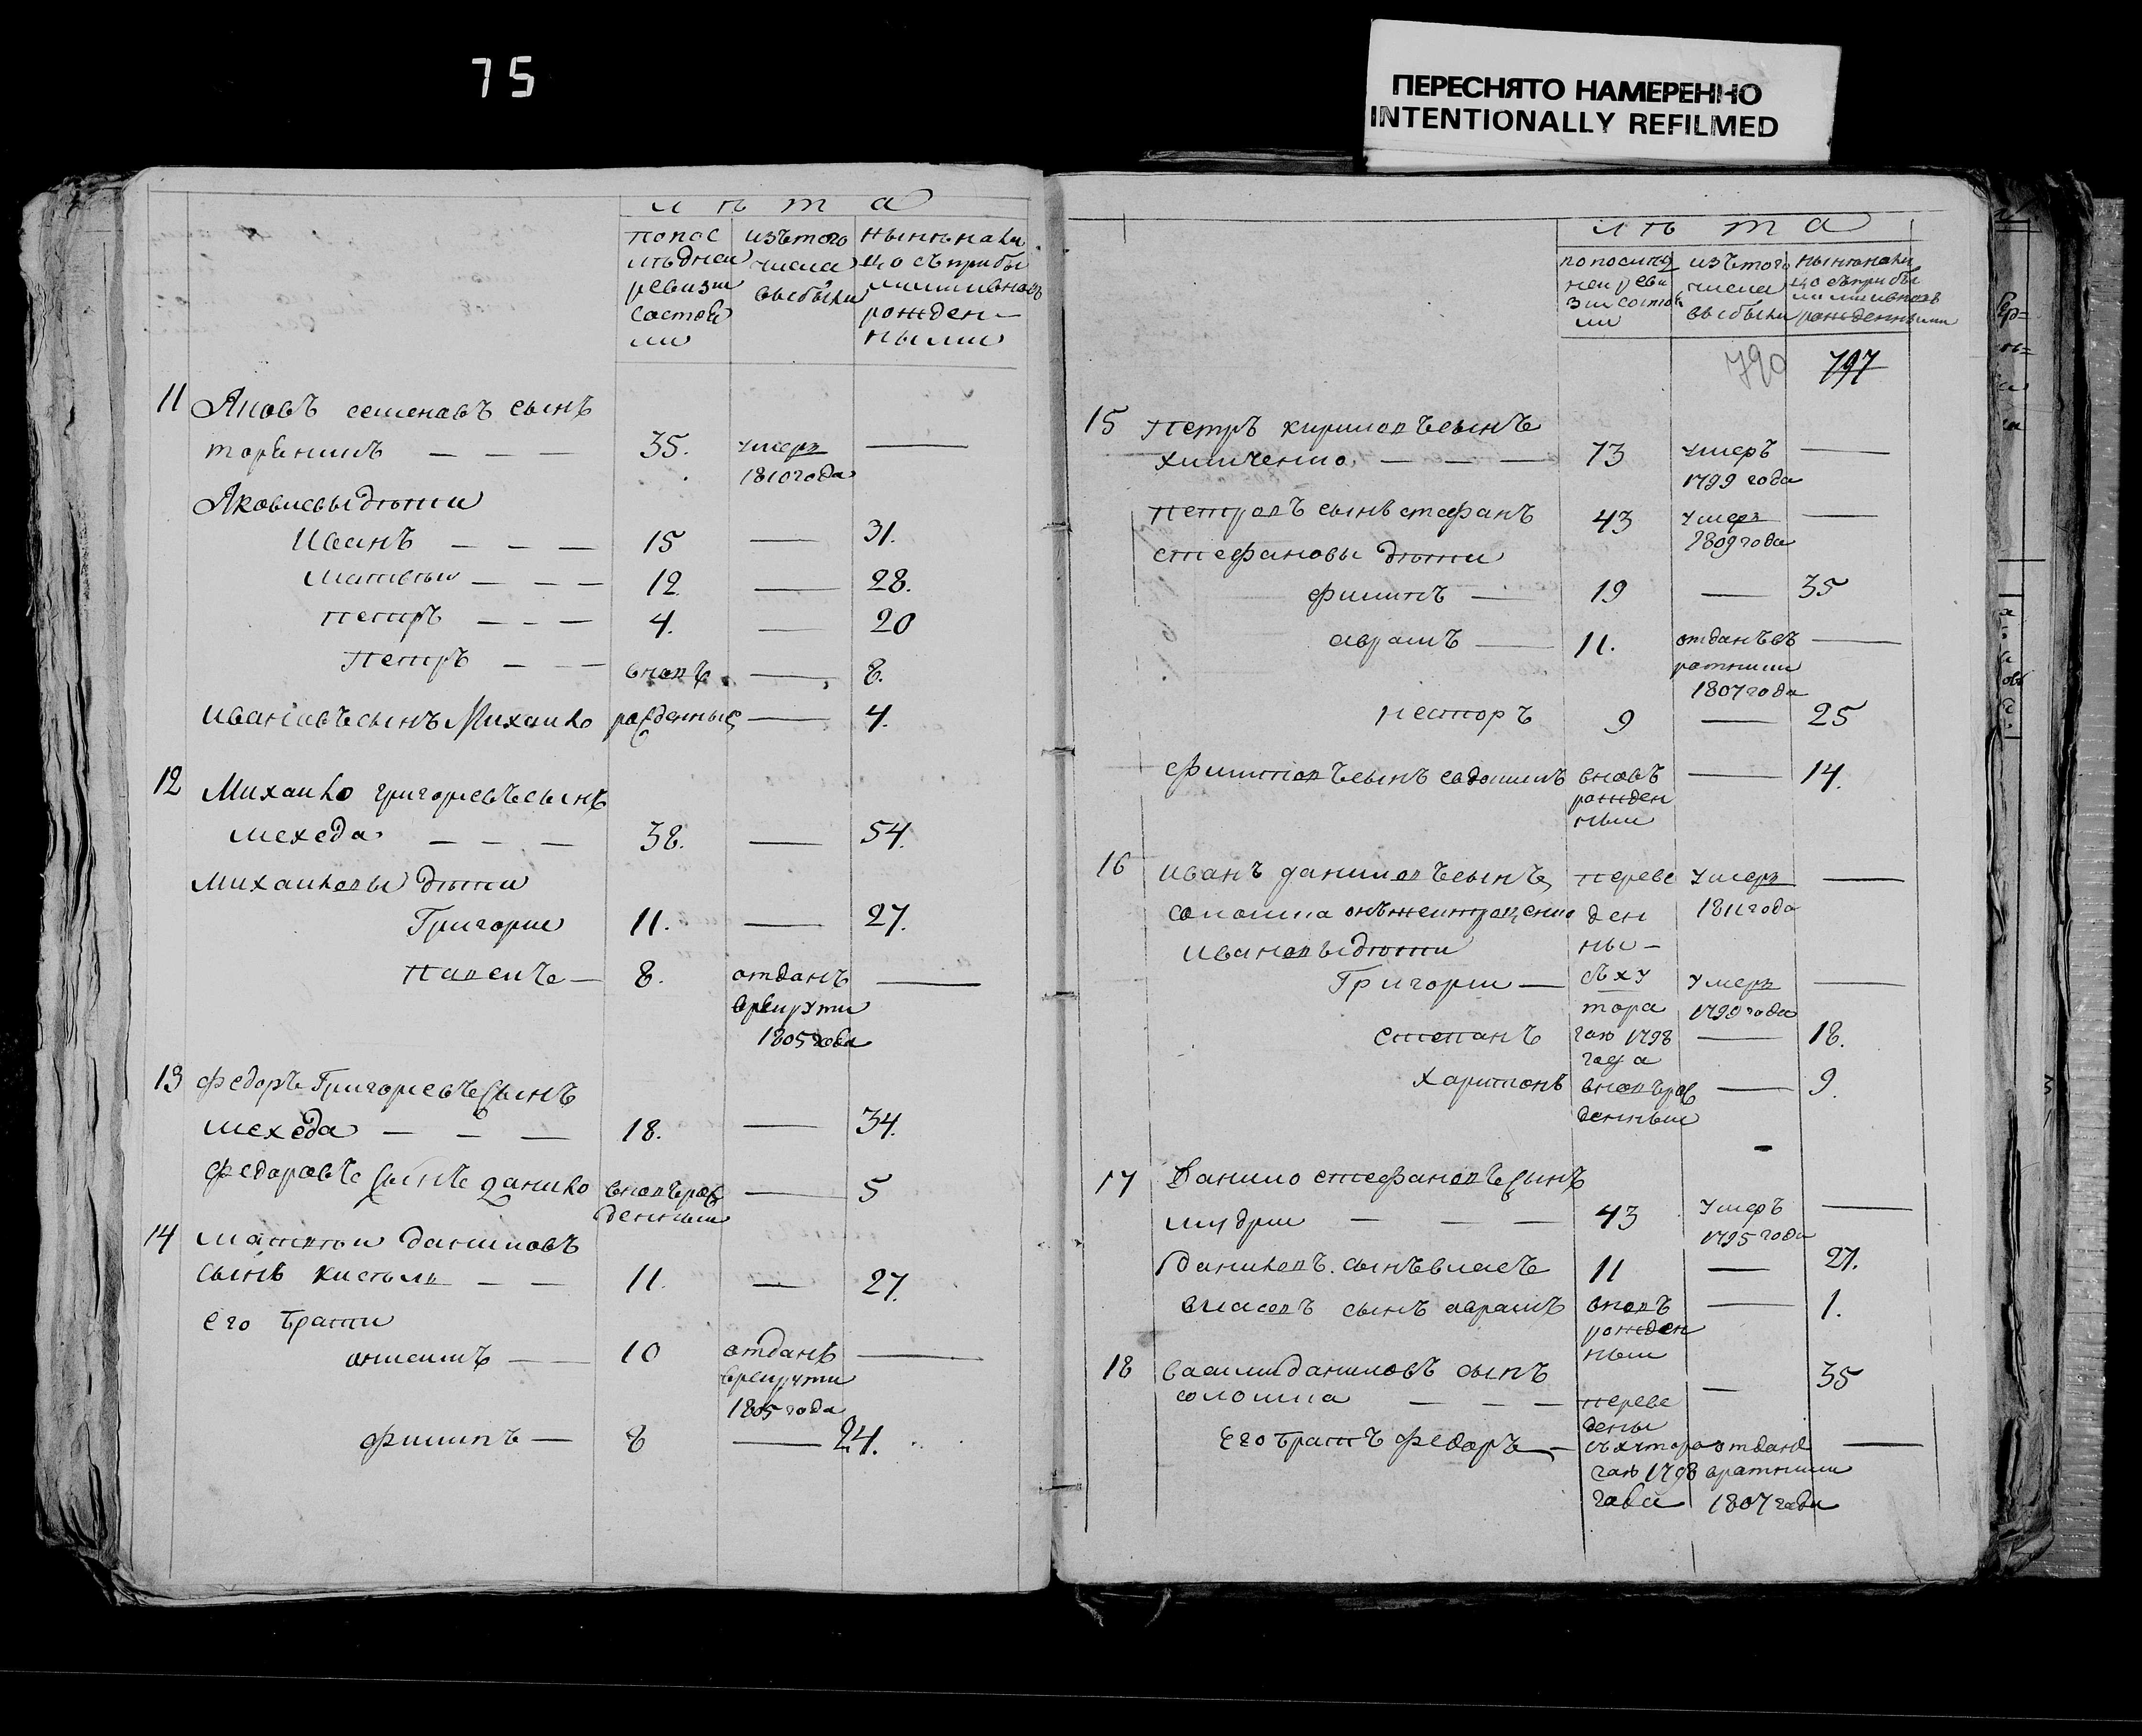 75
ПЕРЕСНЯТО НАМЕРЕННО
INTENTIONALLY REFILMED
лѣта
попос
лѣдней
ревизии
состоя
ли
изътого
числа
выбыли
нынѣнали
цо съприбы
лымиивновь
рожден-
ными
11 Яковъ семеновъ сынъ
35. умеръ
1810года
Яковлевыдѣти
Иванъ 15 31.
Матвѣй 12. 28.
Петръ 4. 20
Петръ вновъ 8.
ивановъсынъ Михайло рожденныя 4.
12 Михайло григорьевъсынъ
мехеда 38. 54.
Михайловы дѣти
Григорий 11. 27.
Павелъ 8. отданъ
врекрути
1805 года
13 Федоръ Григорьевъсынъ
мехеда 18. 34.
Федоровъ сынъ данило вновърож
денный 5
14 Матвѣй даниловъ
сынъ 11. 27.
его брати
онисимъ 10 отданъ
врекрути
1805 года
филипъ 8 24.
лѣта
попослед
ней реви
зии состоя
ли
изътого
числа
выбыли
нынѣнали
цо съприбы
лымиивновь
рожденными
790 797
15 Петръ кириловъсынъ
химченко 73 умеръ
1799 года
Петровъ сынъ стефанъ 43 умеръ
1809года
стефановы дѣти
филипъ 19 35
аврамъ 11. отданъвъ
ратники
1807года
несторъ 9 25
филиповъсынъ евдокимъ вновъ 14.
рожден
ный
16 иванъ даниловъсынъ переве умеръ
соломка ден 1811года
Ивановыдѣти ны-
Григорий съху умеръ
тора 1799года
степанъ 1798 18.
года
Харитонъ вновърож 9.
денный
17 Данило стефановъсынъ
мудрий 43 умеръ
1795 года
Даниловъ сынъвласъ 11 27.
власовъ сынъ аврамъ вновъ 1.
рожден
ный
18 василиданиловъ сынъ 35
соломка переве
дены
его братъ Федоръ съхутора отданъ
1798 вратники
года 1807года